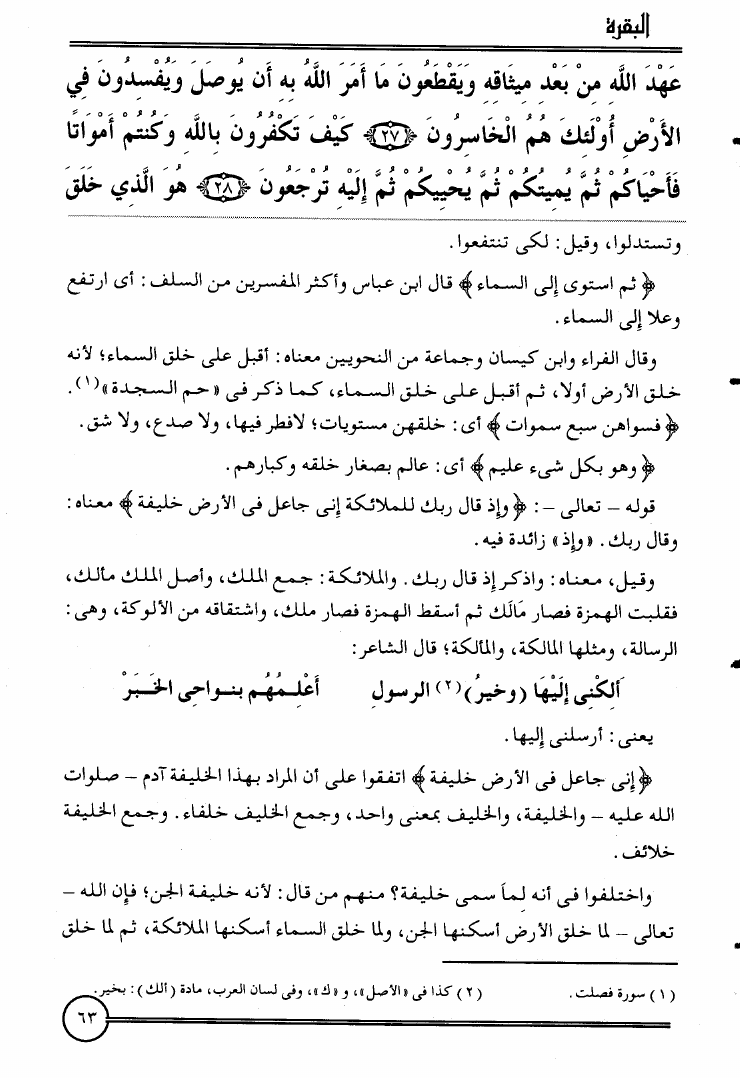 البقرة
عَهْدَ اللَّهِ مِنْ بَعْدِ مِيثَاقِهِ وَيَقْطَعُونَ مَا أَمَرَ اللَّهُ بِهِ أَن يُوصَلَ وَيُفْسِدُونَ فِي
الأَرْضِ أُوْلَئِكَ هُمُ الْخَاسِرُونَ ﴿٢٧﴾ كَيْفَ تَكْفُرُونَ بِاللَّهِ وَكُنتُمْ أَمْوَاتًا
فَأَحْيَاكُمْ ثُمَّ يُمِيتُكُمْ ثُمَّ يُحْيِيكُمْ ثُمَّ إِلَيْهِ تُرْجَعُونَ ﴿٢٨﴾ هُوَ الَّذِي خَلَقَ
وتستدلوا، وقيل: لكى تنتفعوا.
﴿ ثم استوى إلى السماء ﴾ قال ابن عباس وأكثر المفسرين من السلف: أى ارتفع
وعلا إلى السماء.
وقال الفراء وابن كيسان وجماعة من النحويين معناه: أقبل على خلق السماء؛ لأنه
خلق الأرض أولا، ثم أقبل على خلق السماء، كما ذكر فى «حم السجدة»(١).
﴿ فسواهن سبع سموات ﴾ أى: خلقهن مستويات؛ لافطر فيها، ولا صدع، ولا شق.
﴿ وهو بكل شىء عليم ﴾ أى: عالم بصغار خلقه وكبارهم.
قوله – تعالى –: ﴿ وإذ قال ربك للملائكة إنى جاعل فى الأرض خليفة ﴾ معناه:
وقال ربك. «وإذ» زائدة فيه.
وقيل، معناه: واذكر إذ قال ربك. والملائكة: جمع الملك، وأصل الملك مألك،
فقلبت الهمزة فصار مَالَك ثم أسقط الهمزة فصار ملك، واشتقاقه من الألوكة، وهى:
الرسالة، ومثلها المالكة، والمألكة؛ قال الشاعر:
أَلِكْنِى إِلَيْهَا (وخيرُ)(٢) الرسول أَعْلِمُهُم بنواحِى الخَبَرْ
يعنى: أرسلنى إليها.
﴿ إنى جاعل فى الأرض خليفة ﴾ اتفقوا على أن المراد بهذا الخليفة آدم – صلوات
الله عليه – والخليفة، والخليف بمعنى واحد، وجمع الخليف خلفاء. وجمع الخليفة
خلائف.
واختلفوا فى أنه لِمَا سمى خليفة؟ منهم من قال: لأنه خليفة الجن؛ فإن الله –
تعالى – لما خلق الأرض أسكنها الجن، ولما خلق السماء أسكنها الملائكة، ثم لما خلق
(١) سورة فصلت. (٢) كذا فى «الأصل»، و «ك»، وفى لسان العرب، مادة (ألك): بخير.
٦٣